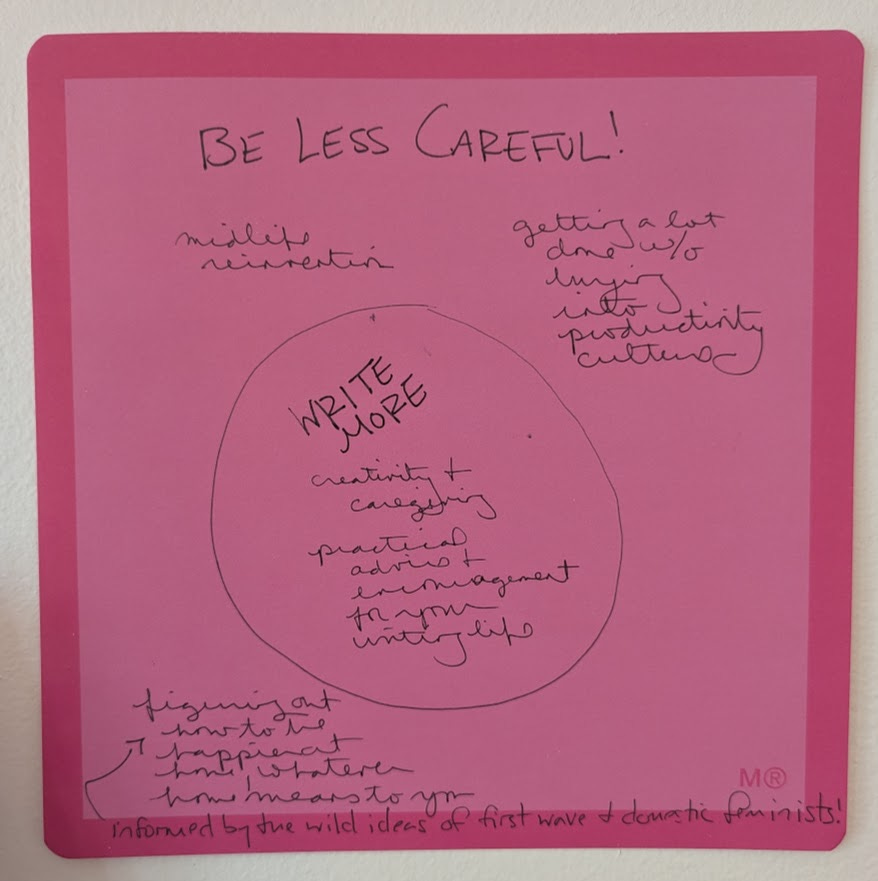 BE LESS CAREFUL!
midlife
reinvention
getting a lot
done w/o
buying
into
productivity
culture
WRITE
MORE
creativity +
caregiving
practical
advice +
encouragement
for your
writing life
figuring out
how to be
happier at
home, whatever
home means to you
M®
informed by the wild ideas of first wave + domestic feminists!